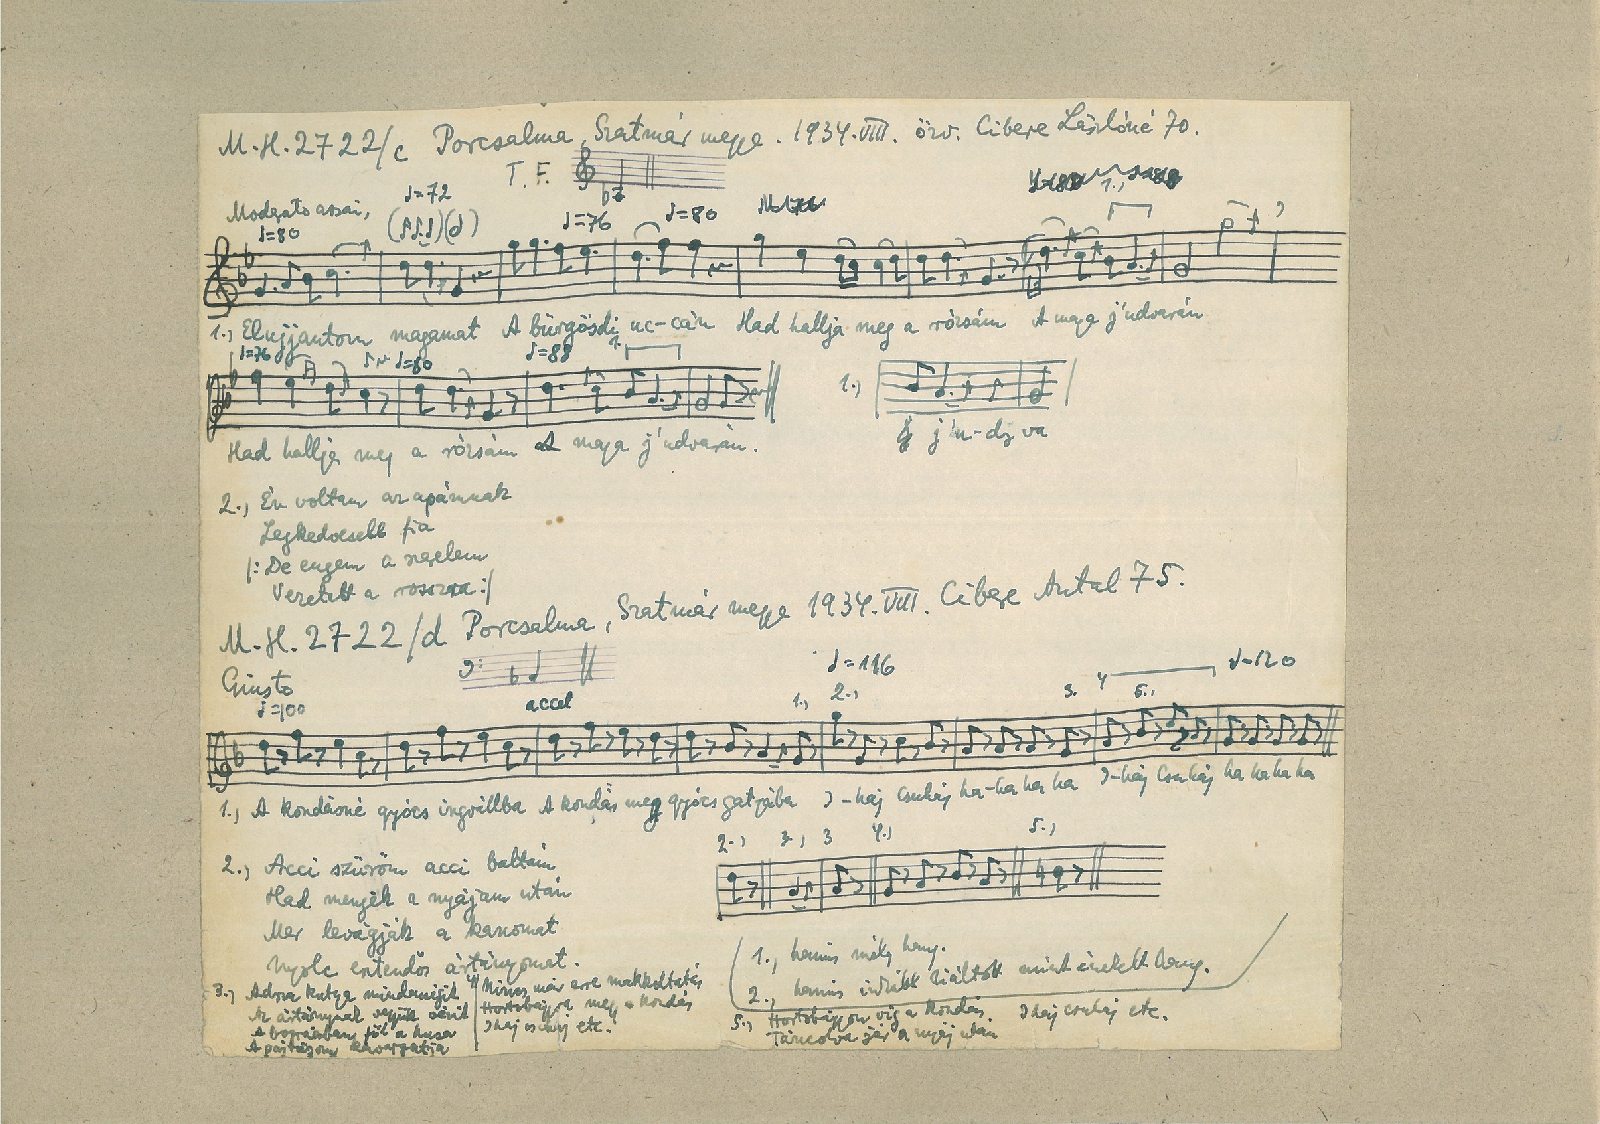 M.H. 2722/c Porcsalma, Szatmár megye. 1934. VIII. özv. Cibere Lászlóné 70.
T. F.
Moderato assai,
♩=80 ♩=72 ♩=76 ♩=80
1.,
1., Elujjantom magamat A bürgösdi uc-cán Had hallja meg a rózsám A maga j'udvarán
♩=76 ♩=80 ♩=88 1.
1.,
Had hallja meg a rózsám A maga j'udvarán.
j'u-dv va
2., Én voltam az apámnak
Legkedvesebb fia
|: De engem a szerelem
Vezetett a rosszra :|
M.H. 2722/d Porcsalma, Szatmár megye 1934. VIII. Cibere Antal 75.
Giusto
♩=100 accel 1., 2., ♩=116 3. 4 5., ♩=120
1., A kondásné gyócs ingvállba A kondás meg gyócs gatyába I-haj csuhaj ha-ha ha ha I-haj csuhaj ha ha ha ha
2., 3., 3 4., 5.,
2., Acci szűröm acci baltám
Had menjek a nyájam után
Mer levágják a kanomat
Nyolc esztendős ártányomat.
3., Adsza kutya mindenégit
Az ártánynak vegyük vérit
A bográcsban fől a husa
A pajtásom kavargatja
4 Nincs már erre makkoltatás
Hortobágyra megy a kondás
Ihaj csuhaj etc.
1., hamis mély hang.
2., hamis inkább kiáltott mint énekelt hang.
5., Hortobágyon víg a kondás. Ihaj csuhaj etc.
Táncolva jár a nyáj után